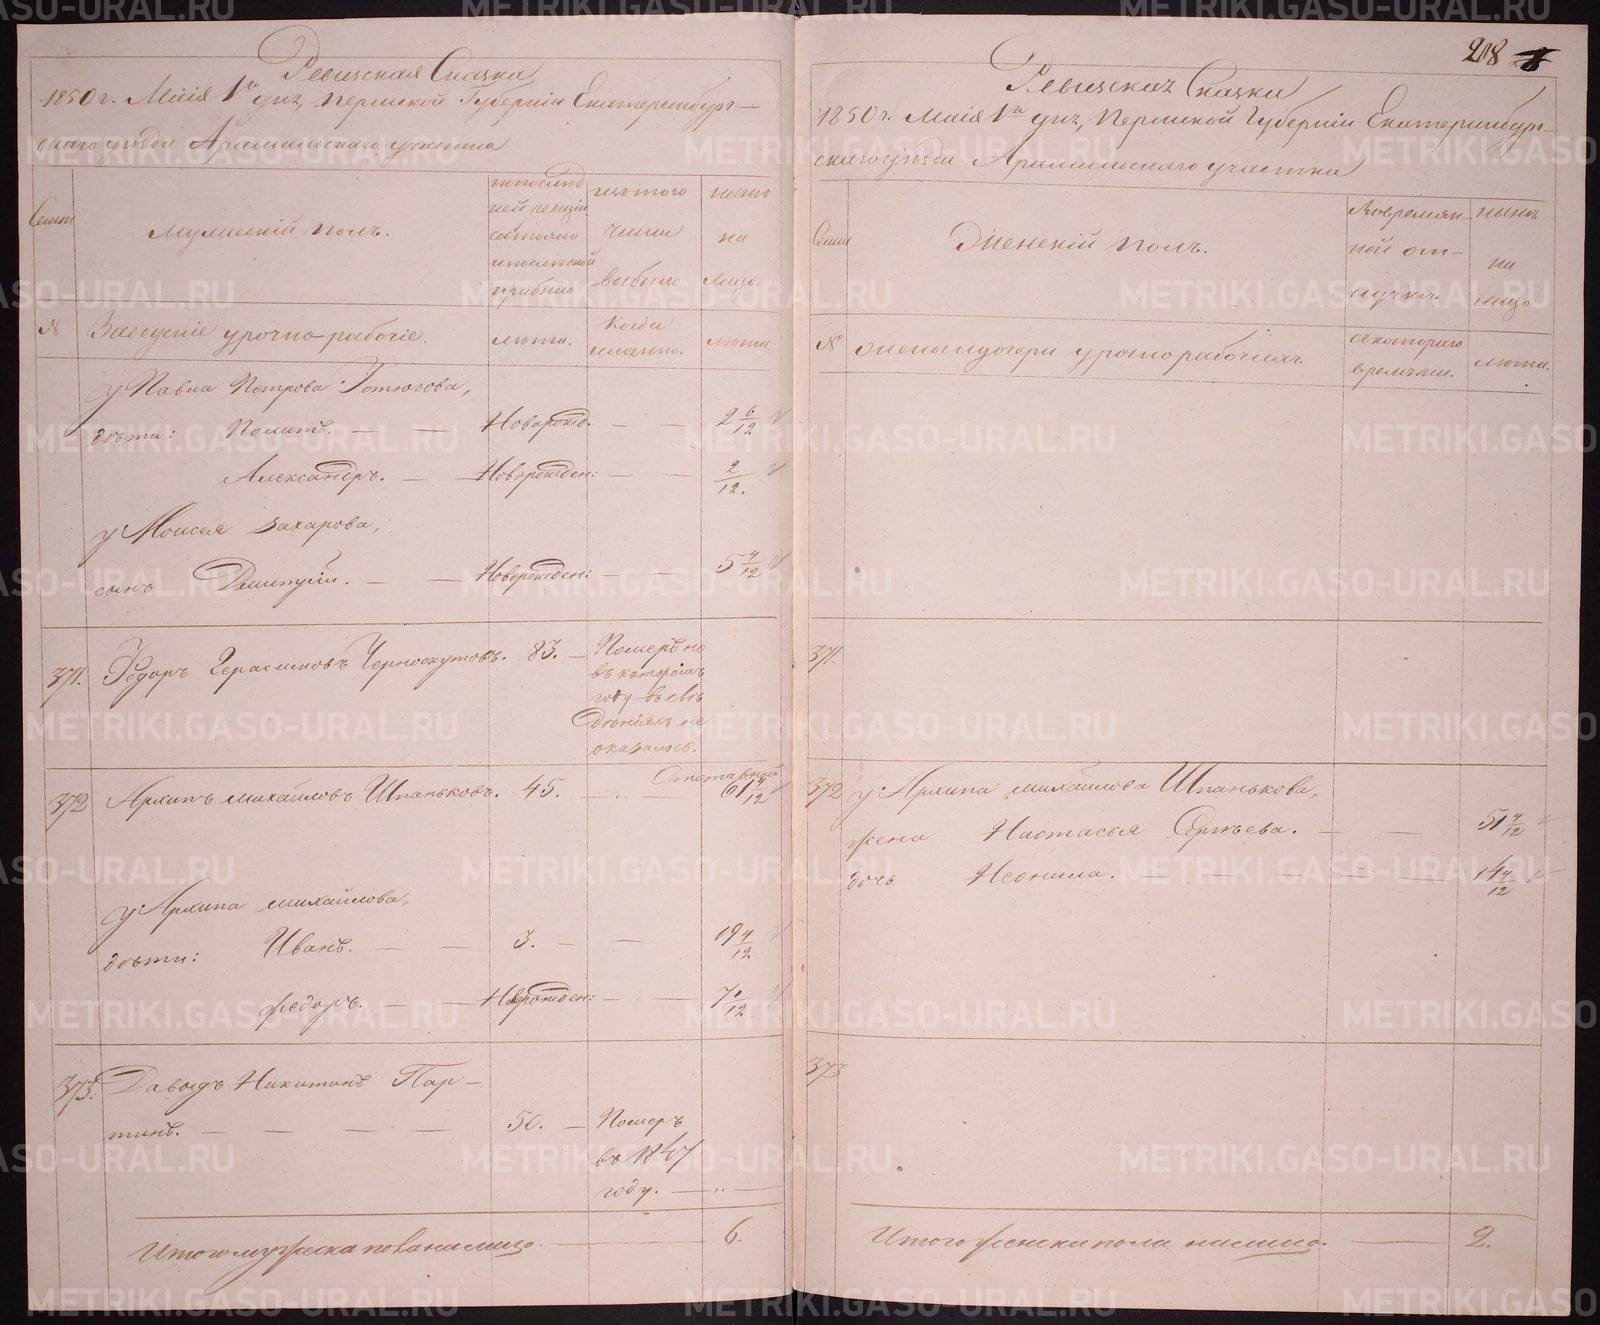 218
Ревизская Сказка
1850 г. Маія 1го дня, Пермской Губерніи Екатеринбург-
скаго уѣзда Арамильскаго участка
Семьи
Мужескій полъ.
по послѣд
ней ревизіи
состояло
и послѣ оной
прибыло
изъ того
числа
выбыло
нынѣ
на
лицо.
№
Заводскіе урочно-рабочіе.
лѣта.
Когда
именно.
лѣта
у Павла Петрова
дѣти: — — Новорожд. — — 2 6/12
Александръ. — — Новорожден: — — 2/12.
у Моисея Захарова,
сынъ Дмитрій. — — Новорожден: — — 5 4/12
371. Федоръ Герасимовъ Черноскутовъ. 83. —
Померъ но
въ которомъ
году въ свѣ
деніяхъ не
оказалось.
372 Архипъ Михайловъ Шпаньковъ. 45. — Отставной 61 4/12
у Архипа Михайлова,
дѣти: Иванъ. — — 3. — — 19 4/12
Федоръ. — — Новорожден: — — 7/12
373. Давыдъ Никитинъ Пар-
тинъ. — — — — — 50. —
Померъ
въ 1847
году. — „ —
Итого мужеска пола налицо. 6.
Ревизская Сказка
1850 г. Маія 1го дня, Пермской Губерніи Екатеринбург-
скаго уѣзда Арамильскаго участка
Семьи
Женскій полъ.
Во времян-
ной от-
лучкѣ.
нынѣ
на
лицо
№
жены и дочери урочнорабочихъ.
съ котораго
времѣни.
лѣта.
371.
372 у Архипа Михайлова Шпанькова,
жена Настасья Сергѣева. — — 51 4/12
дочь Неонила. — — — — 14 4/12
373
Итого женска пола налицо. 2.
METRIKI.GASO-URAL.RU